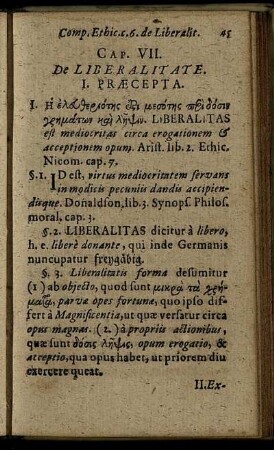 Comp. Ethic. c. 6. de Liberalit. 45
CAP. VII.
De LIBERALITATE.
I. PRÆCEPTA.
I. Η ἐλευθεριότης ἐςὶ μεσότης περὶ δόσιν
χρημάτων καὶ λῆψιν. LIBERALITAS
est mediocritas circa erogationem &
acceptionem opum. Arist. lib. 2. Ethic.
Nicom. cap. 7.
§. 1. ID est, virtus mediocritatem servans
in modicis pecuniis dandis accipien-
disque. Donaldson, lib. 3. Synops. Philos.
moral, cap. 3.
§. 2. LIBERALITAS dicitur à libero,
h. e. liberè donante, qui inde Germanis
nuncupatur freygäbig.
§. 3. Liberalitatis forma desumitur
(1) ab objecto, quod sunt μικρὰ τὰ χρή-
ματα, parvæ opes fortunæ, quo ipso dif-
fert à Magnificentia, ut quæ versatur circa
opus magnas. (2.) à propriis actionibus,
quæ sunt δόσις λῆψις, opum erogatio, &
acceptio, qua opus habet, ut priorem diu
exercere queat.
II. Ex-